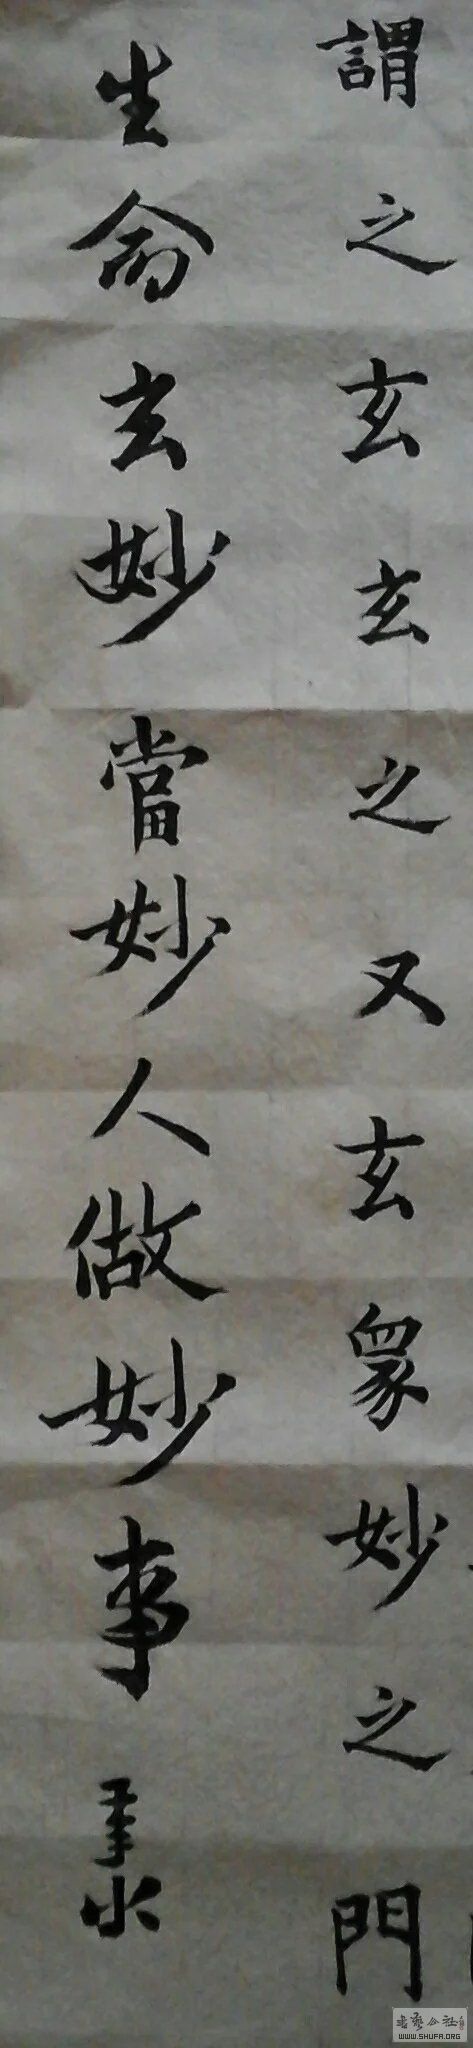 謂之玄玄之又玄眾妙之門
生命玄妙當妙人做妙事
WWW.SHUFA.ORG